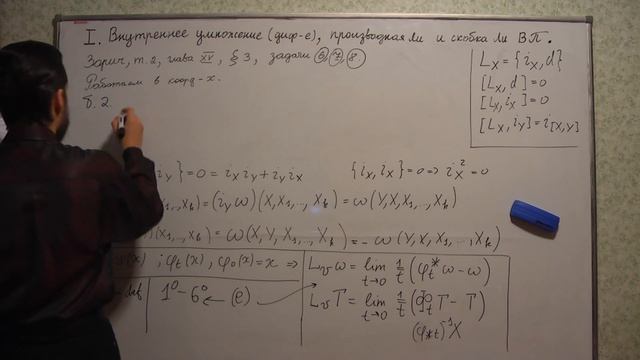 I. Внутреннее умножение (диф-е), производная ли и скобка ли ВП.
Зорич, т. 2, глава XV, § 3, задачи 6, 7, 8.
Работаем в коорд-х.
б. 2.
L_X = {i_X, d}
[L_X, d] = 0
[L_X, i_X] = 0
[L_X, i_Y] = i_[X,Y]
i_Y} = 0 = i_X i_Y + i_Y i_X
{i_X, i_X} = 0 => i_X^2 = 0
X_1, .., X_k) = (i_Y ω)(X, X_1, .., X_k) = ω(Y, X, X_1, .., X_k)
(X_1, .., X_k) = ω(X, Y, X_1, .., X_k) = - ω(Y, X, X_1, .., X_k)
(x) ; φ_t(x), φ_0(x) = x =>
def 1° – 6° ← (е)
L_v ω = lim_{t→0} 1/t (φ_t^* ω - ω)
L_v T = lim_{t→0} 1/t (T - T)
(φ_{*t})^{-1} X